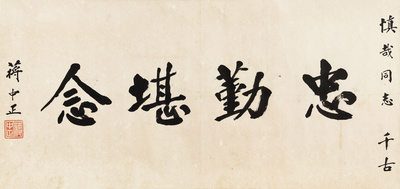 慎哉同志 千古
忠勤堪念
蒋中正